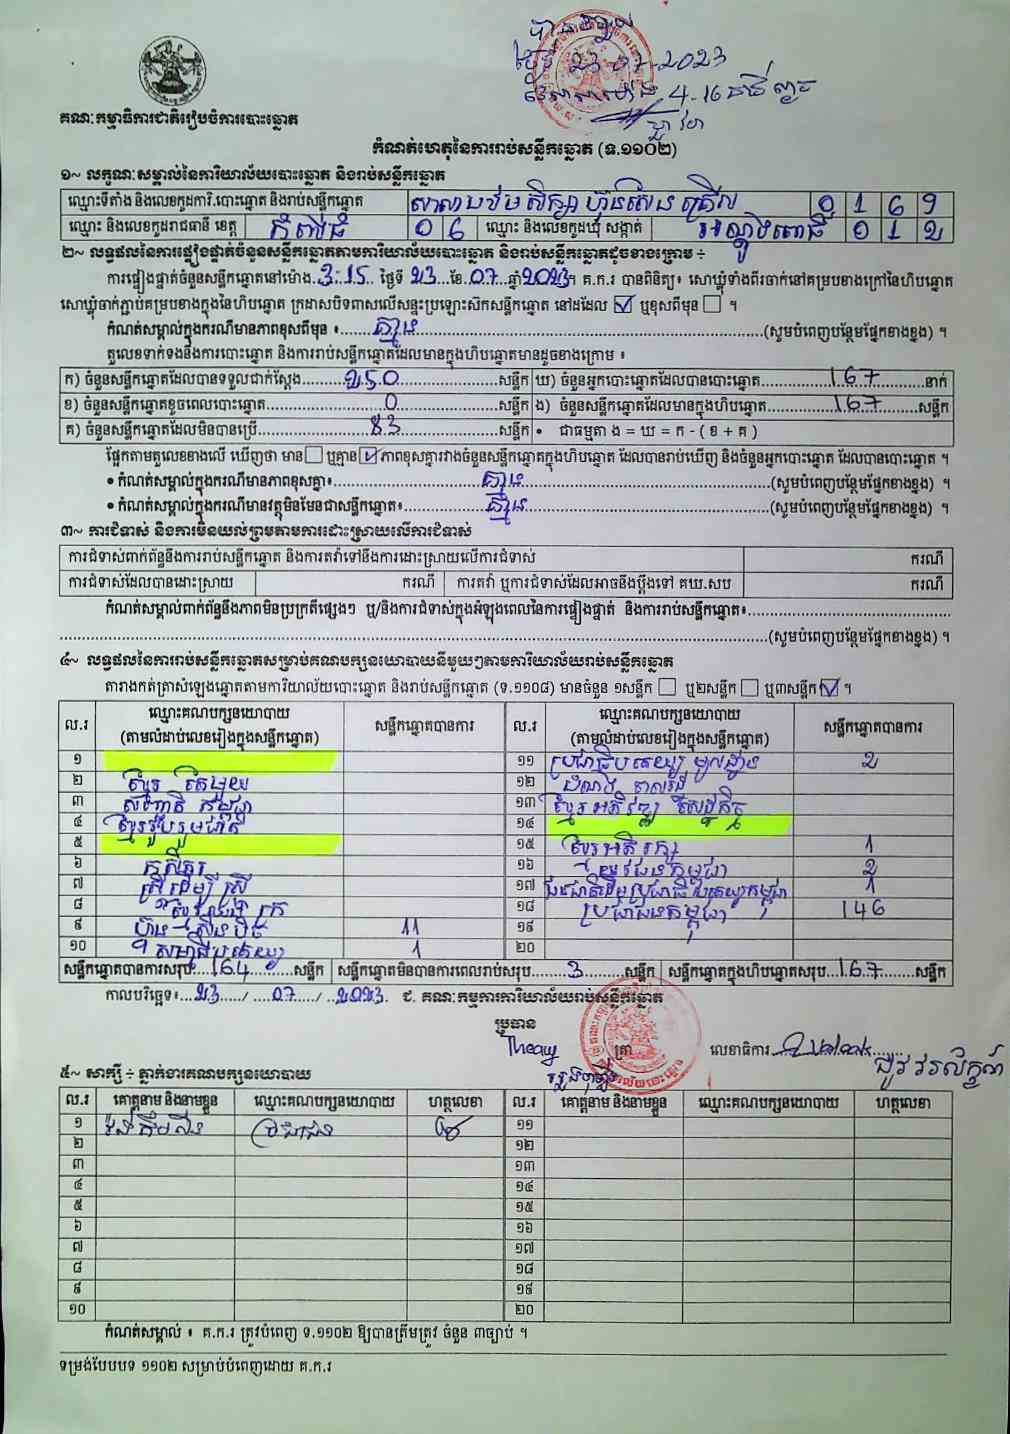 បានទទួល
ថ្ងៃទី 23-07-2023
វេលាម៉ោង 4-16 នាទី ល្ងាច
គណៈកម្មាធិការជាតិរៀបចំការបោះឆ្នោត
កំណត់ហេតុនៃការរាប់សន្លឹកឆ្នោត (ទ.១១០២)
១~ លក្ខណៈសម្គាល់នៃការិយាល័យបោះឆ្នោត និងរាប់សន្លឹកឆ្នោត
ឈ្មោះទីតាំង និងលេខកូដការិ.បោះឆ្នោត និងរាប់សន្លឹកឆ្នោត សាលាបឋមសិក្សា ហ៊ុនសែន 0 1 6 9
ឈ្មោះ និងលេខកូដរាជធានី ខេត្ត កំពង់ធំ 0 6 ឈ្មោះ និងលេខកូដឃុំ សង្កាត់ អណ្តូងពោធិ៍ 0 1 2
២~ លទ្ធផលនៃការផ្ទៀងផ្ទាត់ចំនួនសន្លឹកឆ្នោតតាមការិយាល័យបោះឆ្នោត និងរាប់សន្លឹកឆ្នោតដូចខាងក្រោម ÷
ការផ្ទៀងផ្ទាត់ចំនួនសន្លឹកឆ្នោតនៅម៉ោង 3:15 ថ្ងៃទី 23 ខែ 07 ឆ្នាំ 2023។ គ.ក.រ បានពិនិត្យ៖ សោឃ្លុំទាំងពីរចាក់នៅគម្របខាងក្រៅនៃហិបឆ្នោត
សោឃ្លុំចាក់ភ្ជាប់គម្របខាងក្នុងនៃហិបឆ្នោត ក្រដាសបិទពាសលើសន្ទះប្រឡោះសឹកសន្លឹកឆ្នោត នៅដដែល ☑ ឬខុសពីមុន ☐ ។
កំណត់សម្គាល់ក្នុងករណីមានភាពខុសពីមុន ៖ គ្មាន (សូមបំពេញបន្ថែមផ្នែកខាងខ្នង) ។
តួលេខទាក់ទងនឹងការបោះឆ្នោត និងការរាប់សន្លឹកឆ្នោតដែលមានក្នុងហិបឆ្នោតមានដូចខាងក្រោម ៖
ក) ចំនួនសន្លឹកឆ្នោតដែលបានទទួលជាក់ស្តែង 250 សន្លឹក ឃ) ចំនួនអ្នកបោះឆ្នោតដែលបានបោះឆ្នោត 167 នាក់
ខ) ចំនួនសន្លឹកឆ្នោតខូចពេលបោះឆ្នោត 0 សន្លឹក ង) ចំនួនសន្លឹកឆ្នោតដែលមានក្នុងហិបឆ្នោត 167 សន្លឹក
គ) ចំនួនសន្លឹកឆ្នោតដែលមិនបានប្រើ 83 សន្លឹក • ជាធម្មតា ង = ឃ = ក - ( ខ + គ )
ផ្អែកតាមតួលេខខាងលើ ឃើញថា មាន ☐ ឬគ្មាន ☑ ភាពខុសគ្នារវាងចំនួនសន្លឹកឆ្នោតក្នុងហិបឆ្នោត ដែលបានរាប់ឃើញ និងចំនួនអ្នកបោះឆ្នោត ដែលបានបោះឆ្នោត ។
• កំណត់សម្គាល់ក្នុងករណីមានភាពខុសគ្នា៖ គ្មាន (សូមបំពេញបន្ថែមផ្នែកខាងខ្នង) ។
• កំណត់សម្គាល់ក្នុងករណីមានវត្ថុមិនមែនជាសន្លឹកឆ្នោត៖ គ្មាន (សូមបំពេញបន្ថែមផ្នែកខាងខ្នង) ។
៣~ ការជំទាស់ និងការមិនយល់ព្រមតាមការដោះស្រាយលើការជំទាស់
ការជំទាស់ពាក់ព័ន្ធនឹងការរាប់សន្លឹកឆ្នោត និងការតវ៉ាទៅនឹងការដោះស្រាយលើការជំទាស់ ករណី
ការជំទាស់ដែលបានដោះស្រាយ ករណី ការតវ៉ា ឬការជំទាស់ដែលអាចនឹងប្តឹងទៅ គឃ.សប ករណី
កំណត់សម្គាល់ពាក់ព័ន្ធនឹងភាពមិនប្រក្រតីផ្សេងៗ ឬ/និងការជំទាស់ក្នុងអំឡុងពេលនៃការផ្ទៀងផ្ទាត់ និងការរាប់សន្លឹកឆ្នោត៖
(សូមបំពេញបន្ថែមផ្នែកខាងខ្នង) ។
៤~ លទ្ធផលនៃការរាប់សន្លឹកឆ្នោតសម្រាប់គណបក្សនយោបាយនីមួយៗតាមការិយាល័យរាប់សន្លឹកឆ្នោត
តារាងកត់ត្រាសំឡេងឆ្នោតតាមការិយាល័យបោះឆ្នោត និងរាប់សន្លឹកឆ្នោត (ទ.១១០៨) មានចំនួន ១សន្លឹក ☐ ឬ២សន្លឹក ☐ ឬ៣សន្លឹក ☑ ។
ល.រ ឈ្មោះគណបក្សនយោបាយ (តាមលំដាប់លេខរៀងក្នុងសន្លឹកឆ្នោត) សន្លឹកឆ្នោតបានការ ល.រ ឈ្មោះគណបក្សនយោបាយ (តាមលំដាប់លេខរៀងក្នុងសន្លឹកឆ្នោត) សន្លឹកឆ្នោតបានការ
១ ១១ ប្រជាធិបតេយ្យមូលដ្ឋាន 2
២ ខ្មែរតែមួយ ១២
៣ សញ្ជាតិកម្ពុជា ១៣ ខ្មែរអភិវឌ្ឍន៍សេដ្ឋកិច្ច
៤ ខ្មែររួបរួមជាតិ ១៤
៥ ១៥ 1
៦ កសិករ ១៦ យុវជនកម្ពុជា 2
៧ ស្ត្រីដើម្បីស្ត្រី ១៧ ជនជាតិដើមប្រជាធិបតេយ្យកម្ពុជា 1
៨ ១៨ ប្រជាជនកម្ពុជា 146
៩ ហ៊្វុនស៊ិនប៉ិច 11 ១៩
១០ 1 ២០
សន្លឹកឆ្នោតបានការសរុប 164 សន្លឹក សន្លឹកឆ្នោតមិនបានការពេលរាប់សរុប 3 សន្លឹក សន្លឹកឆ្នោតក្នុងហិបឆ្នោតសរុប 167 សន្លឹក
កាលបរិច្ឆេទ៖ 23 / 07 / 2023 ជ. គណៈកម្មការការិយាល័យរាប់សន្លឹកឆ្នោត
ប្រធាន
Theavy ត្រា លេខាធិការ
៥~ សាក្សី ÷ ភ្នាក់ងារគណបក្សនយោបាយ
ល.រ គោត្តនាម និងនាមខ្លួន ឈ្មោះគណបក្សនយោបាយ ហត្ថលេខា ល.រ គោត្តនាម និងនាមខ្លួន ឈ្មោះគណបក្សនយោបាយ ហត្ថលេខា
១ ប្រជាជន ១១
២ ១២
៣ ១៣
៤ ១៤
៥ ១៥
៦ ១៦
៧ ១៧
៨ ១៨
៩ ១៩
១០ ២០
កំណត់សម្គាល់ ៖ គ.ក.រ ត្រូវបំពេញ ទ.១១០២ ឱ្យបានត្រឹមត្រូវ ចំនួន ៣ច្បាប់ ។
ទម្រង់បែបបទ ១១០២ សម្រាប់បំពេញដោយ គ.ក.រ